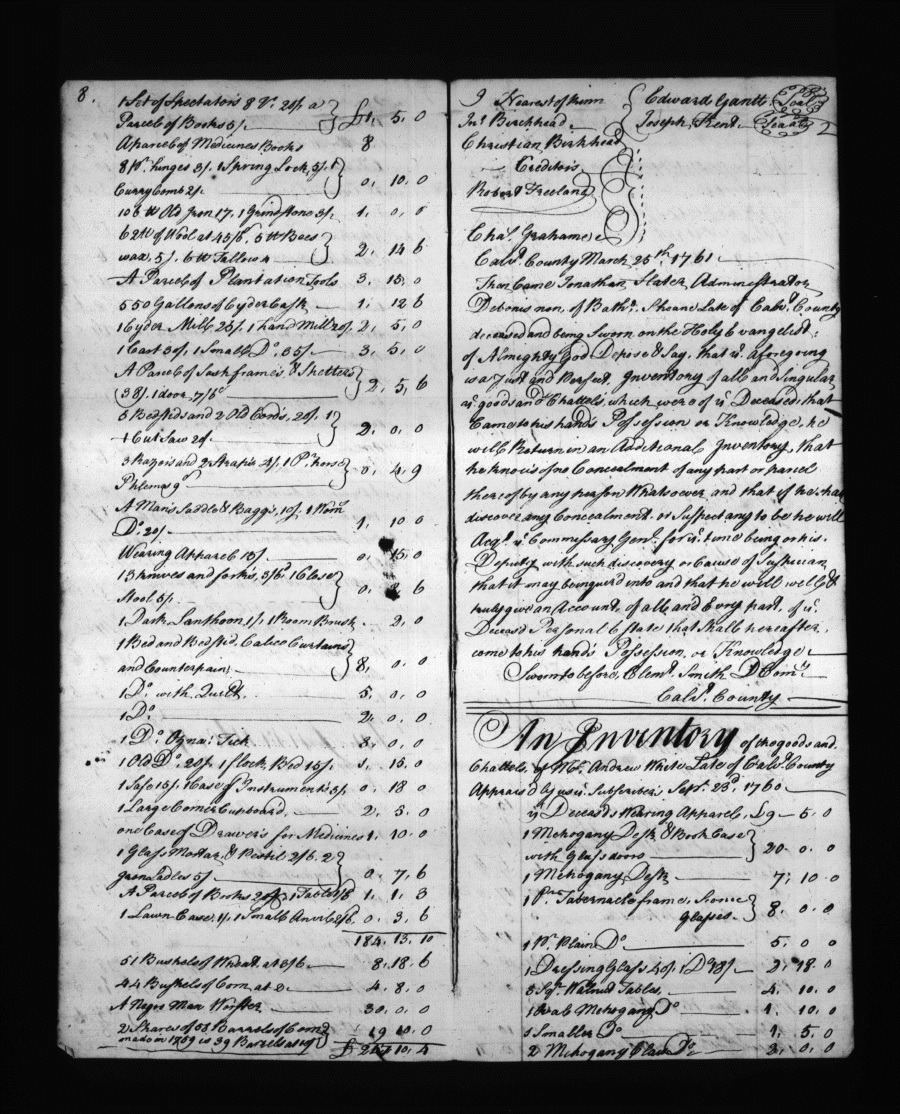 8.
1 Set of Spectators 8 Vo. 20/. a
Parcel of Books 5/. £1. 5. 0
A parcel of Medicines Books 8
8 pr. hinges 3/. 1 Spring Lock, 5/. 1
Curry Comb 2/. 0. 10. 0
106 lb Old Iron 17. 1 Grindstone 3/. 1. 0. 0
62 lb of Wool at 45/6, 5 lb Bees
wax, 5/. 6 lb Tallow 2. 14 6
A Parcel of Plantation Tools 3. 15. 0
550 Gallons of Cyder Cask 1. 12 6
1 Cyder Mill 25/. 1 hand Mill 20/. 2. 5. 0
1 Cart 30/. 1 Small Do. 35/. 3. 5. 0
A Parcel of Sash frames, & Shetters
(38/. 1 door, 7/6 2. 5. 6
5 Bedstids and 2 Old Cords, 20/. 1
+ Cut Saw 20/. 2. 0. 0
3 Razors and 2 Straps 4/. 1 Pr. horse
Phlemes 9d 0. 4. 9
A Mans Saddle & Baggs, 10/. 1 Wom
Do. 20/. 1. 10 0
Wearing Apparel 15/. 0. 15. 0
13 knives and forks, 3/6. 1 Close
Stool 5/. 0. 6
1 Dark Lanthoon, 1/. 1 Room Brush 2. 0
1 Bed and Bedstid, Calico Curtains
and Counterpain 8. 0. 0
1 Do. with Quilt 5. 0. 0
1 Do. 2. 0. 0
1 Do. Ozna: Tick 3. 0. 0
1 Old Do. 20/. 1 flock Bed 15/. 1. 15. 0
1 Safe 15/. 1 Case of Instruments 3/. 0. 18 0
1 Large Corner Cupboard 2. 5. 0
one Case of Drawers for Medicines 1. 10. 0
1 Glass Mortar, & Pestil 2/6. 2
Iron Ladles 5/. 0. 7. 6
A Parcel of Books 20/. 1 Table 1. 1. 3
1 Lawn Case, 1/. 1 Small Anvil 2/6. 0. 3. 6
184. 13. 10
51 Bushels of Wheat at 3/6 8. 18. 6
44 Bushels of Corn, at 2/. 4. 8. 0
A Negro Man 30. 0. 0
2 Shares of 58 Barrels of Corn
made in 1759 is 39 Barrels at 10/. 19 10. 0
£ 10. 4
9 Nearest of kinn Edward Gantt Seal
Jno. Birckhead Joseph Kent Seal
Christian Birkhead
Creditors
Robert Freeland
Chas. Grahame
Calvt. County March 25th. 1761
Then Came Jonathan Slater Administrator
Debonis non, of Bathr. Late of Calvt. County
deceased and being Sworn on the Holy Evangelist:
of Almighty God Depose & Say, that ye. aforegoing
is a Just and Perfect Inventory of all and Singular
ye. goods and Chattels, which were of ye. Deceased, that
Came to his hands Possession or Knowledge, he
will Return in an Additional Inventory, that
he knows of no Concealment of any part or parcel
thereof by any person Whatsoever and that if he shall
discover any Concealment or Suspect any to be he will
Acqt. ye. Commissary Genl. for ye. time being or his
Deputy with such discovery or Cause of Suspicion
that it may be inquired into and that he will well &
truly give an Account of all and Every part of ye.
Deceased Personal Estate that Shall hereafter,
come to his hands Possession, or Knowledge
Sworn to before, Clemt. Smith D Comry
Calvt. County
An Inventory of the goods and
Chattels of Mr. Andrew White Late of Calvt. County
Appraisd by us ye. Subscribers, Septr. 23d. 1760
ye. Deceaseds Wearing Apparel, £9 – 5. 0
1 Mehogany Desk & Book Case
with Glass doors 20. 0. 0
1 Mehogany Desk 7. 10. 0
1 Pr. Tabernacle frame, Sconce
Glasses. 8. 0. 0
1 Pr. Plain Do 5. 0 0
1 Dressing Glass 40/. 1 Do 18/. 2. 18. 0
3 Sqr. Walnut Tables, 4. 10. 0
1 Mehogany Do 1. 10. 0
1 Smaller Do 1. 5. 0
2 Mehogany Do 3. 0. 0